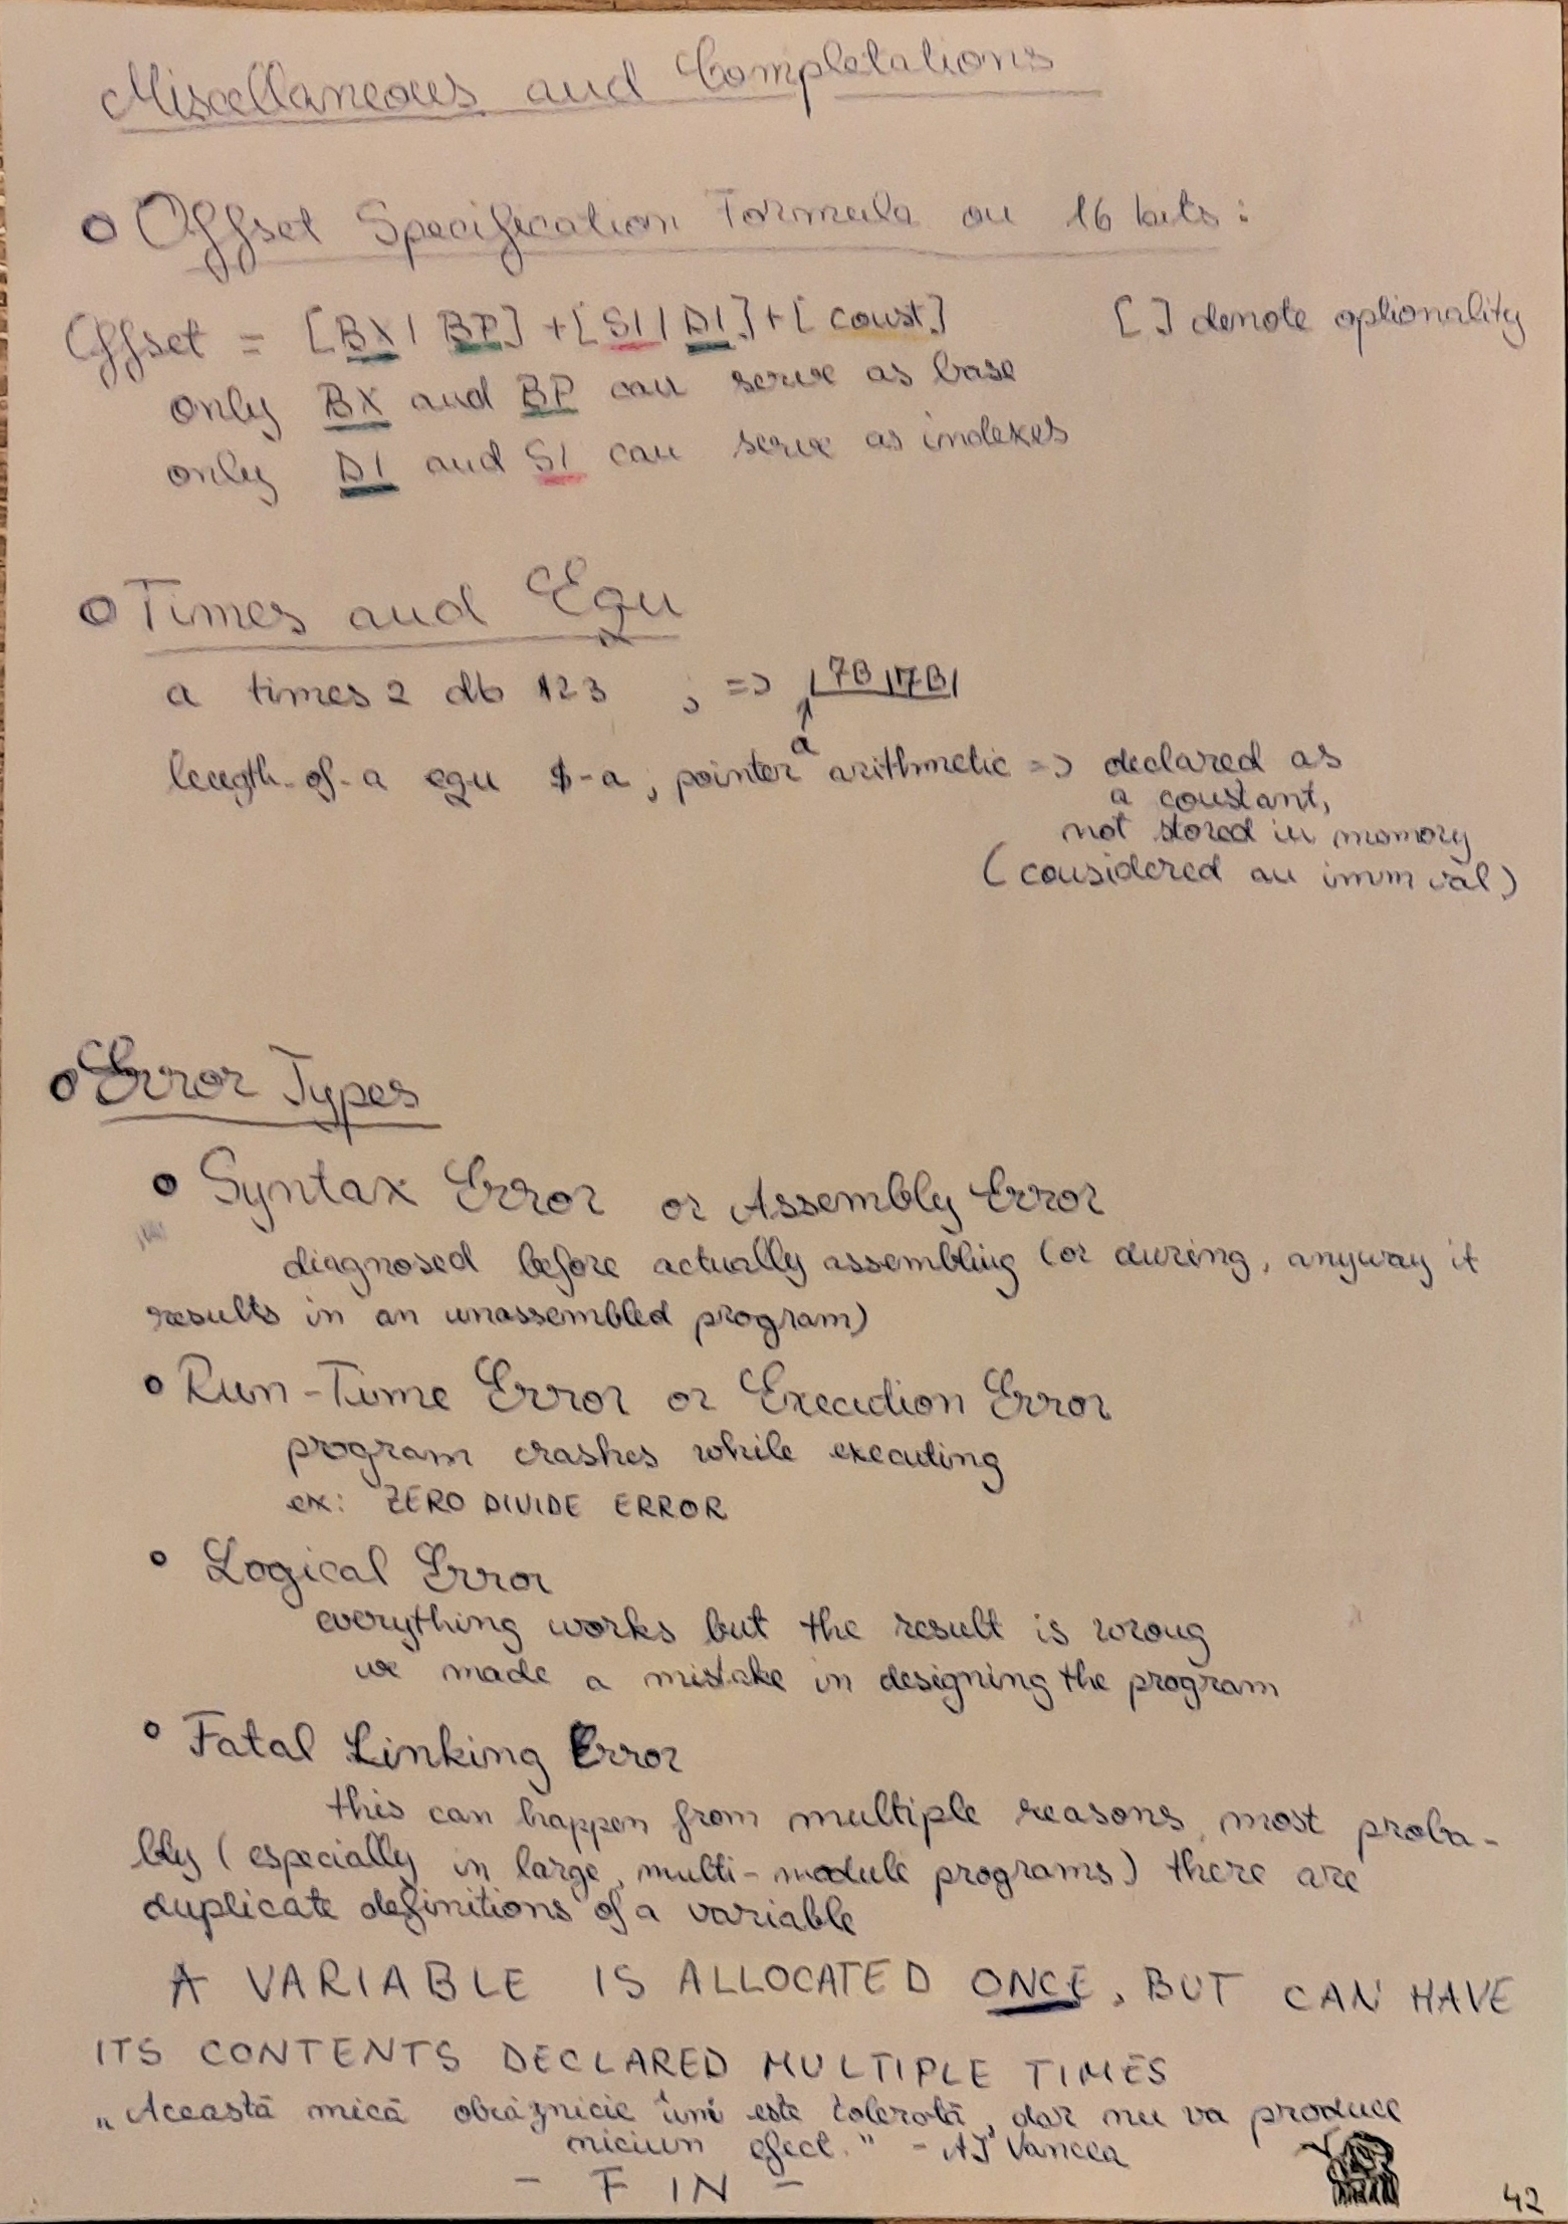 Miscellaneous and Completations
Offset Specification Formula on 16 bits:
Offset = [BX | BP] + [SI | DI] + [const]
[ ] denote optionality
only BX and BP can serve as base
only DI and SI can serve as indexes
Times and Equ
a times 2 db 123 ; => |7B|7B|
a
length-of-a equ $-a ; pointer arithmetic => declared as
a constant,
not stored in memory
(considered an imm val)
Error Types
Syntax Error or Assembly Error
diagnosed before actually assembling (or during, anyway it
results in an unassembled program)
Run-Time Error or Execution Error
program crashes while executing
ex: ZERO DIVIDE ERROR
Logical Error
everything works but the result is wrong
we made a mistake in designing the program
Fatal Linking Error
this can happen from multiple reasons, most proba-
bly (especially in large, multi-module programs) there are
duplicate definitions of a variable
A VARIABLE IS ALLOCATED ONCE, BUT CAN HAVE
ITS CONTENTS DECLARED MULTIPLE TIMES
„Această mică obrăznicie îmi este tolerată, dar nu va produce
niciun efect." - AJ Vancea
- FIN -
42